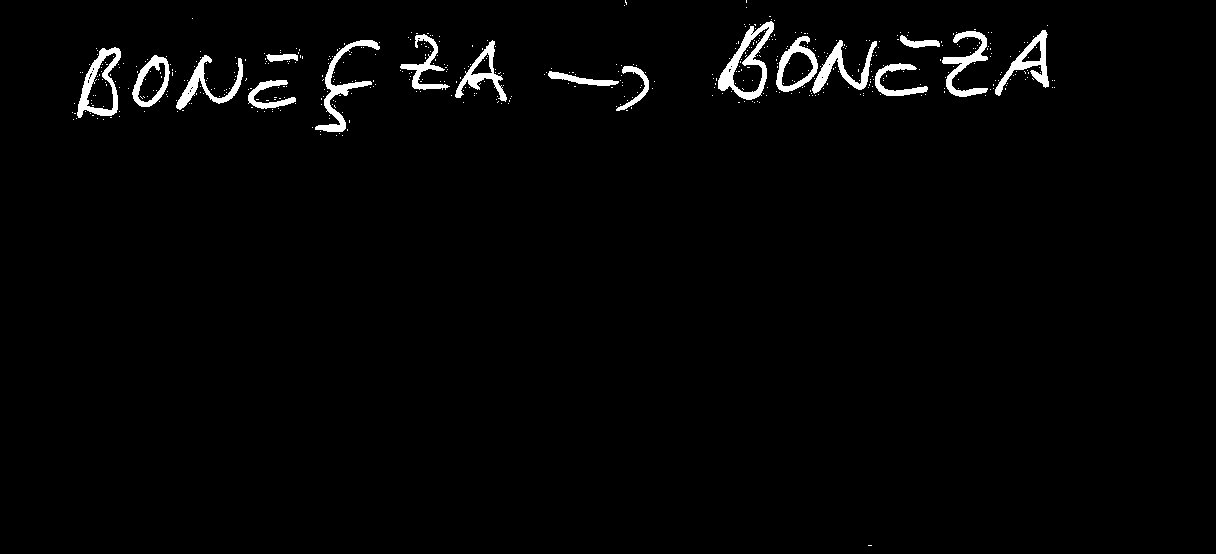 BONEÇZA → BONEZA